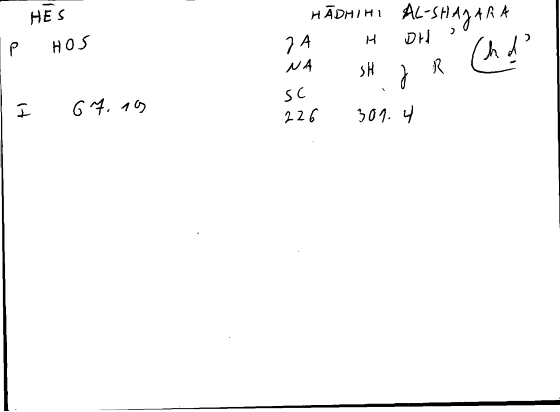 HĒS HĀDHIHI AL-SHAJARA
P HOS JA H DH ' (h d')
NA SH J R
SC
I 67.19 226 301.4